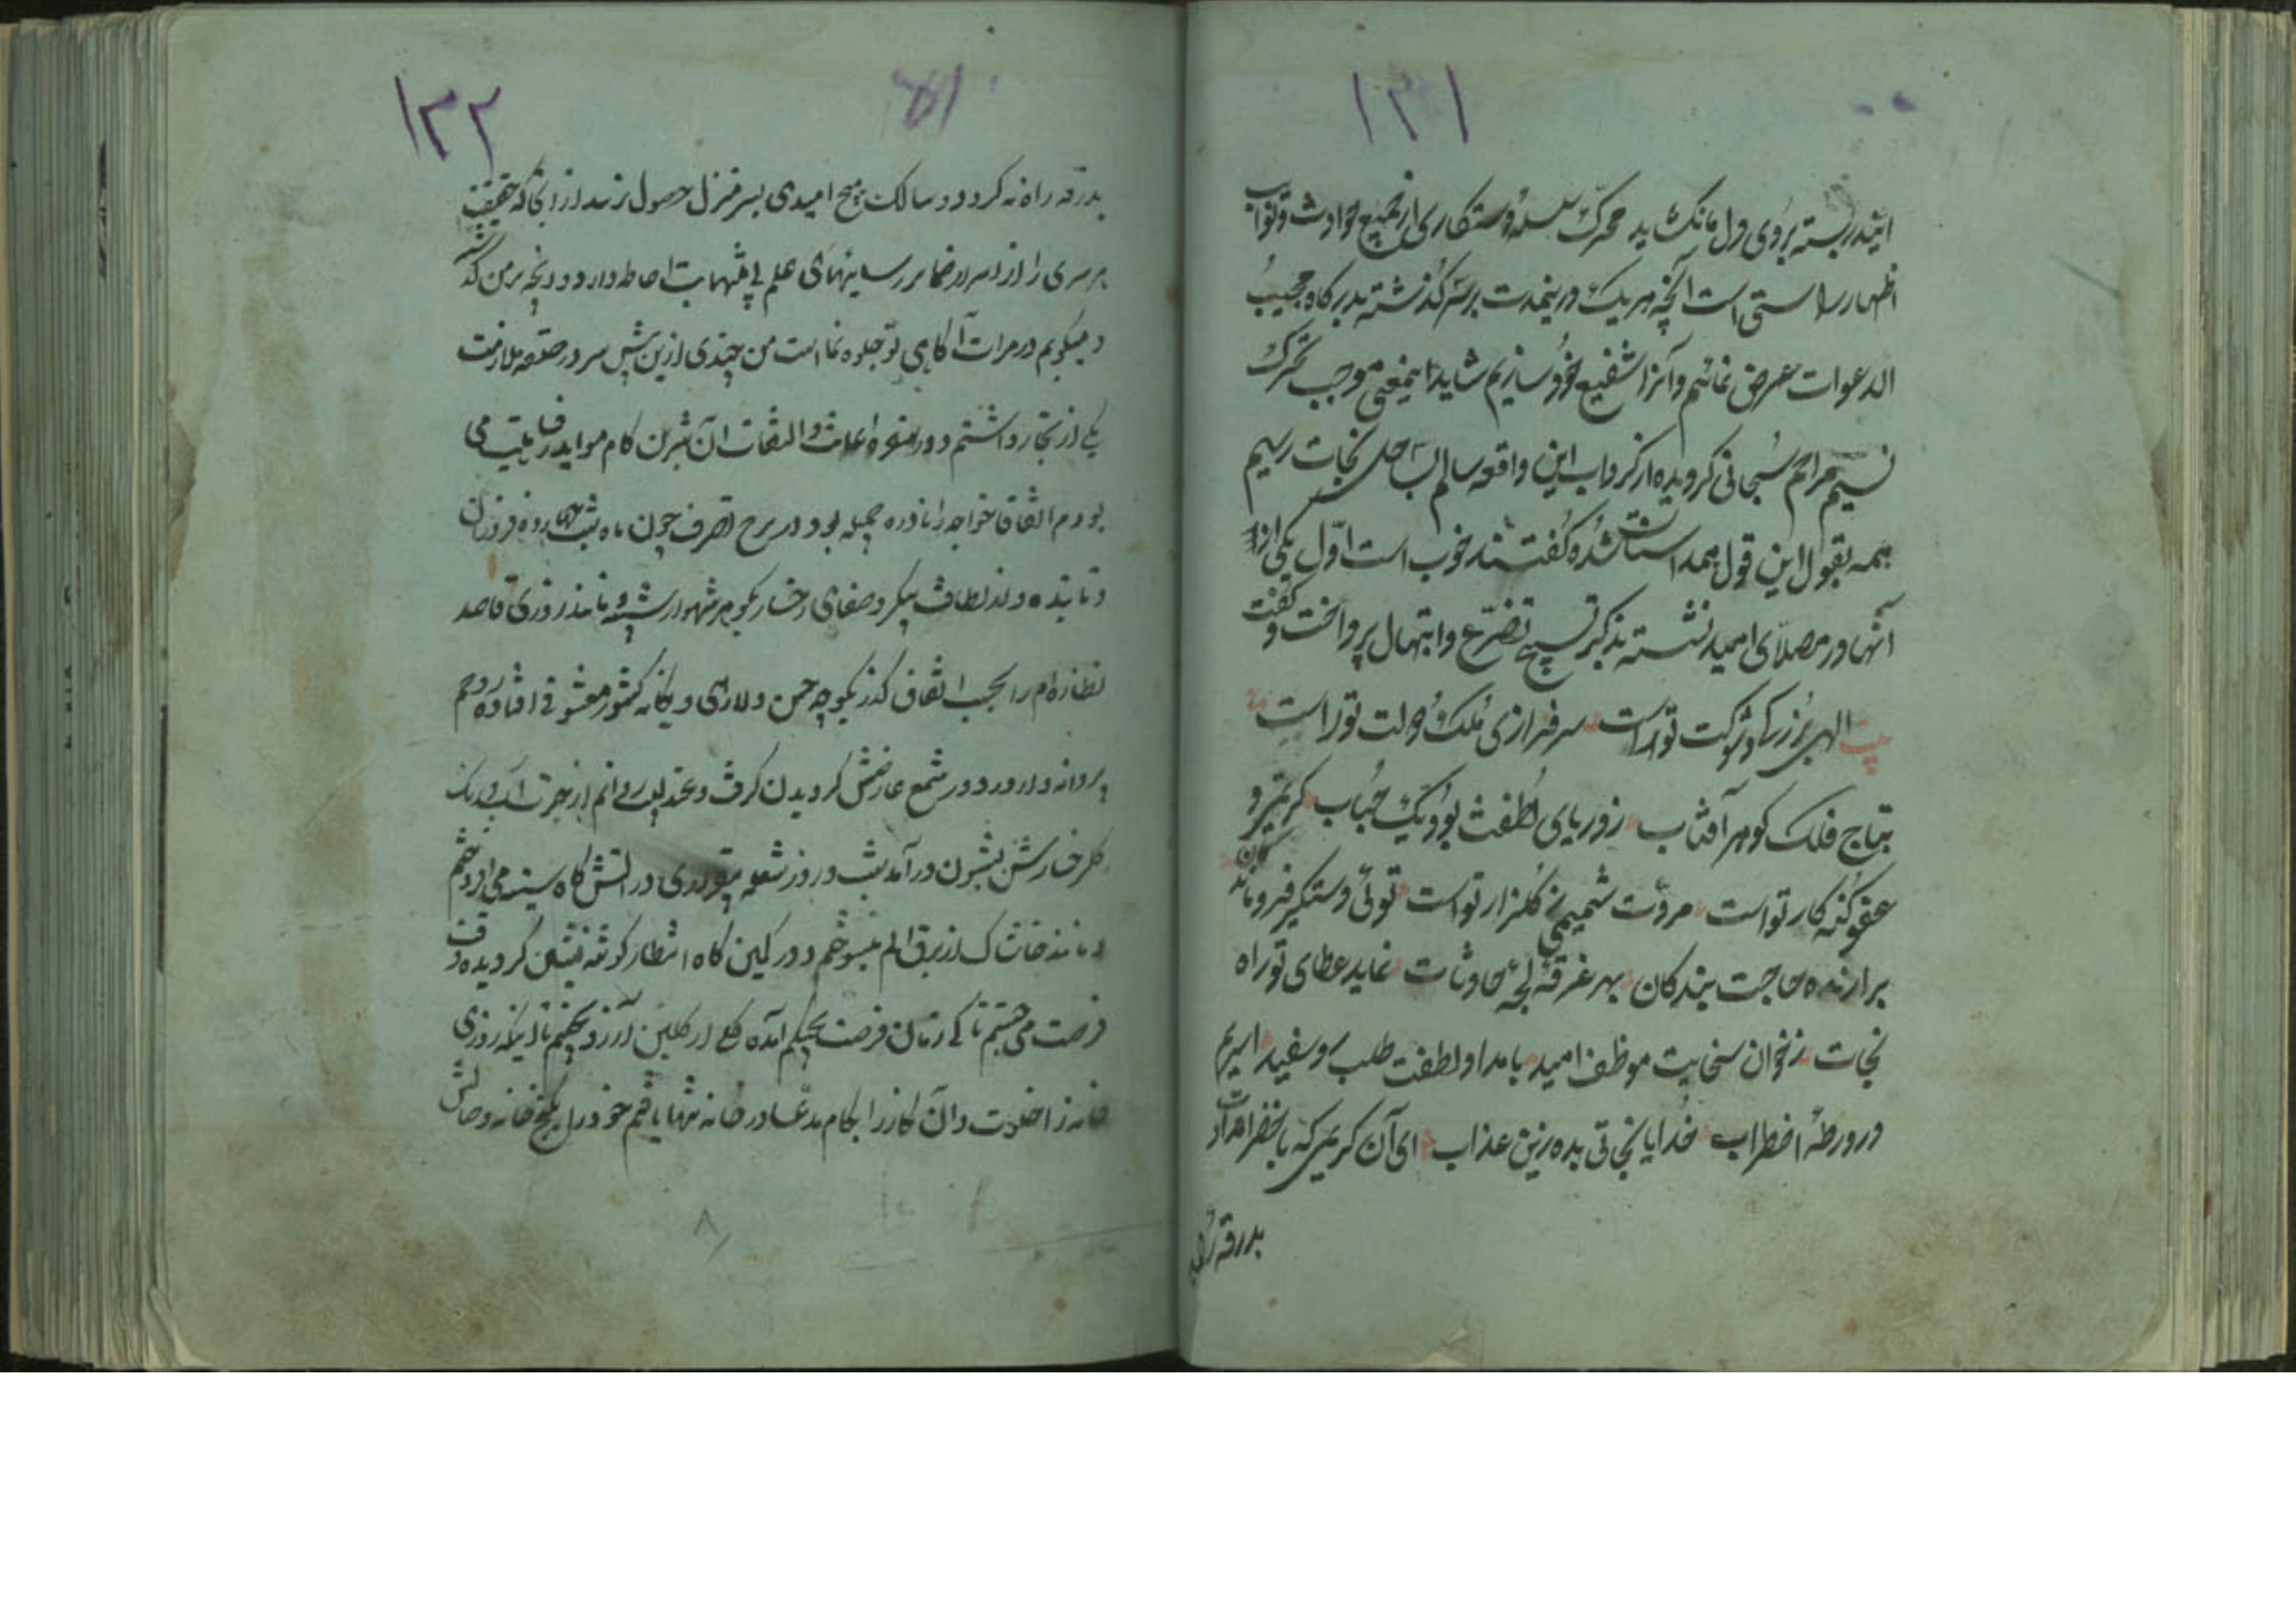 ۱۳۱
ایند دربسته بروی دل ما نکشاید محرک سلسله رستکاری از جمیع حوادث و نوایب
اظهار راستی است آنچه هر یک درینمدت بر سر کذشته بدرکاه مجیب
الدعوات عرض نمائیم و آنرا شفیع خود سازیم شاید اینمعنی موجب تحرک
نسیم مراحم سبحانی کردیده از کرداب این واقعه سالم بساحل نجات رسیم
همه بقبول این قول همداستان شده کفتند خوب است اول یکی از
آنها در مصلای امید نشسته بذکر تسبیح تضرع و ابتهال پرداخت و کفت
الهی بزرکی و شوکت تو راست سرفرازی ملک و دولت تو راست
بتاج فلک کوهر آفتاب ز دریای لطفت بود یک حباب کریمی و
عفو کنه کار تو است مروت شمیمی ز کلزار تو است توئی دستکیر فروماندکان
برازنده حاجت بندکان بهر غرقه لجه حادثات نماید عطای تو راه
نجات ز خوان سخایت موظف امید بامداد لطفت طلب رو سفید اسیرم
در ورطه اضطراب خدایا نجاتی بده زین عذاب ای آن کریمی که تا خضر امدادت
بدرقه راه
۱۳۲
بدرقه راه نه کردد سالک هیچ امیدی بسر منزل حصول نرسد از انجا که حقیقت
هر سری را از اسرار ضمایر رسائیهای علم بی منتهایت احاطه دارد و آنچه بر من کذشته
و میکویم در مرات آکاهی تو جلوه نما است من چندی ازین پیش سر در حلقه ملازمت
یکی از تجار داشتم و در سفره اعانت و التفات آن شیرین کام موائد رفاهیت می
بودم اتفاقا خواجه را نادره جمیله بود در برج تصرف چون ماه شب چهارده فروزان
و تابنده و از لطافت پیکر و صفای رخسار بکوهر شهوار شبیه و مانند روزی قاصد
نظاره ام را بحسب اتفاق کذر بکوچه حسن دلارای و یکانه کشور معشوقی افتاده روحم
پروانه وار در دور شمع عارضش کردیدن کرفت و عندلیب روانم از حیرت آب و رنک
کل رخسارش بشیون در آمد شب و روز شعله بیقراری در آتش کاه سینه می افروختم
و مانند خاشاک از برق الم میسوختم و در کمین کاه انتظار کوشه نشین کردیده وقت
فرصت می جستم تا کی زمان فرصت بچنکم آمده کلی از کلبن آرزو بچینم تا اینکه روزی
خانه را خلوت و آن کار را بکام مدعا در خانه تنها یافتم خود را بکنج خانه وصالش